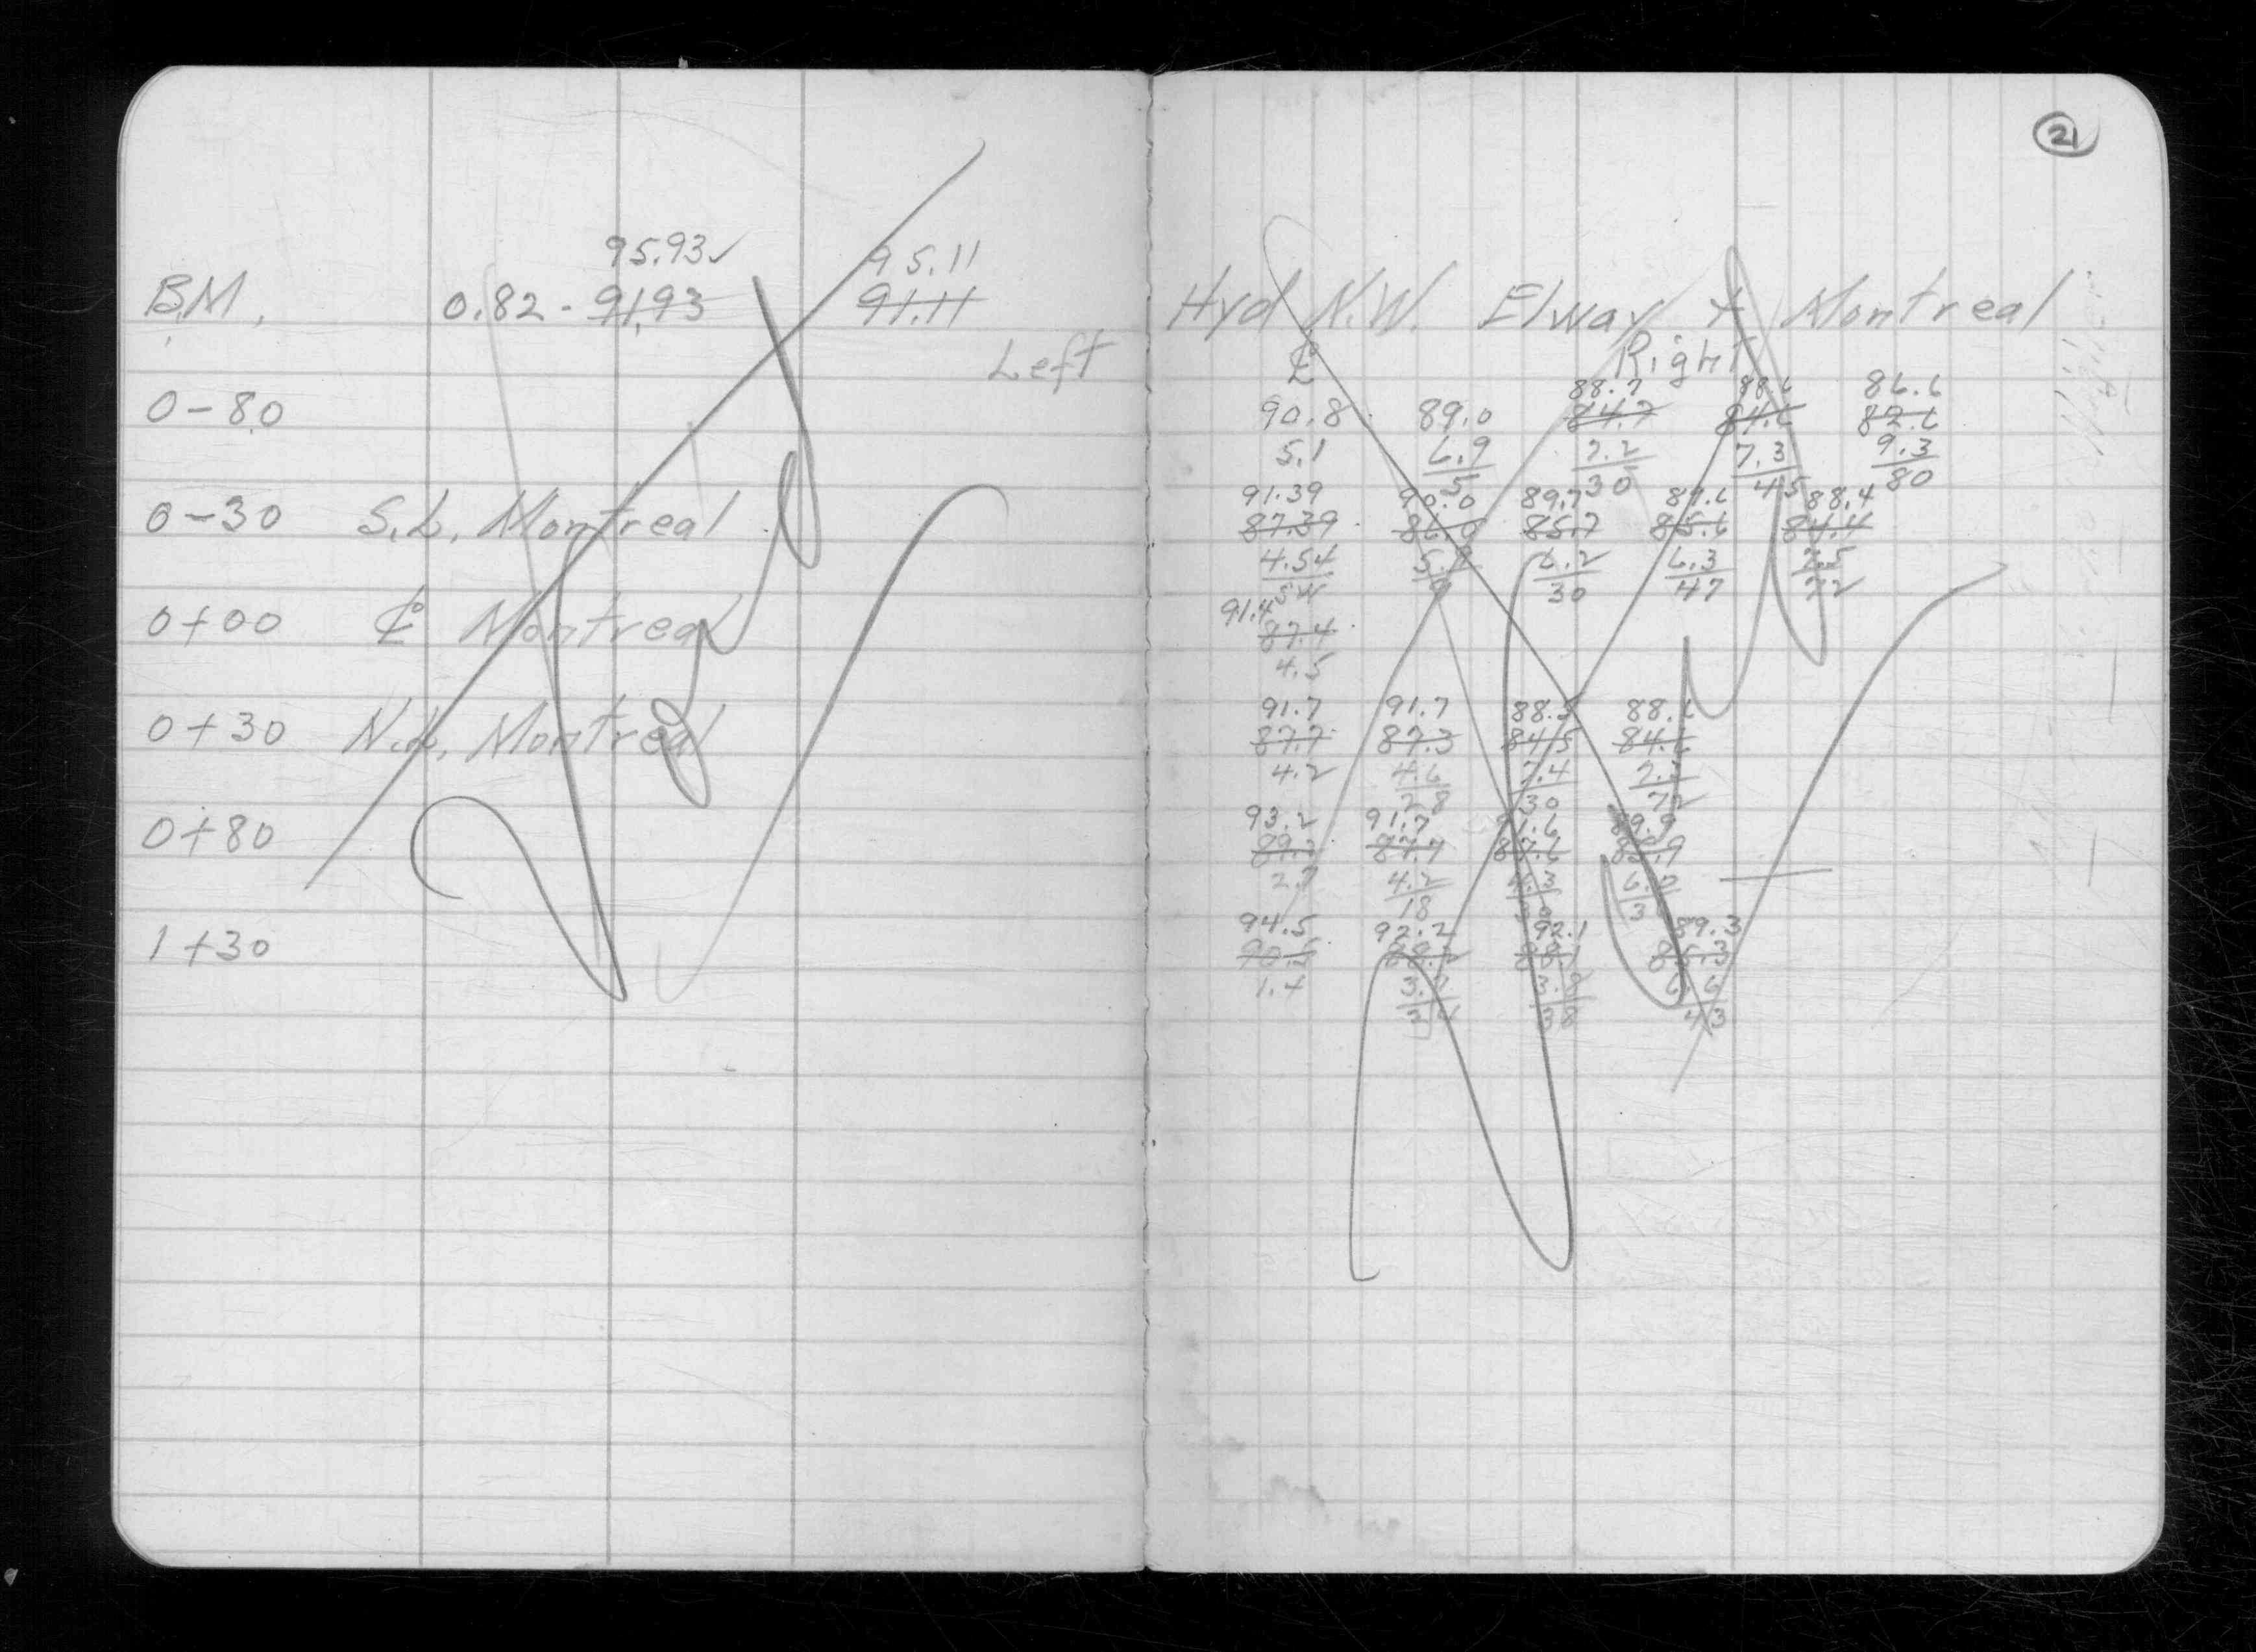 21
95.93✓ 95.11
B.M. 0.82 - 91.93 91.11 Hyd N.W. Elway + Montreal
Left ℄ Right
88.7 88.6 86.6
0-80 90.8 89.0 84.7 84.6 82.6
5.1 6.9 7.2 7.3 9.3
5 30 45 80
91.39 90.0 89.7 89.6 88.4
0-30 S.L. Montreal 87.39 86.0 85.7 85.6 84.4
4.54 6.2 6.3 7.5
SW 30 47 72
91.4
0+00 ℄ Montreal 87.4
4.5
91.7 91.7 88.5 88.6
0+30 N.L. Montreal 87.7 87.3 84.5 84.6
4.2 4.6 7.4
28 30 72
93.2 91.7 91.6 89.9
0+80 89.2 87.7 87.6 85.9
2.7 4.2 4.3 6.0
18 30
94.5 92.2 92.1 89.3
1+30 90.5 88.2 88.1 85.3
1.4 3.7 3.8 6.6
38 43